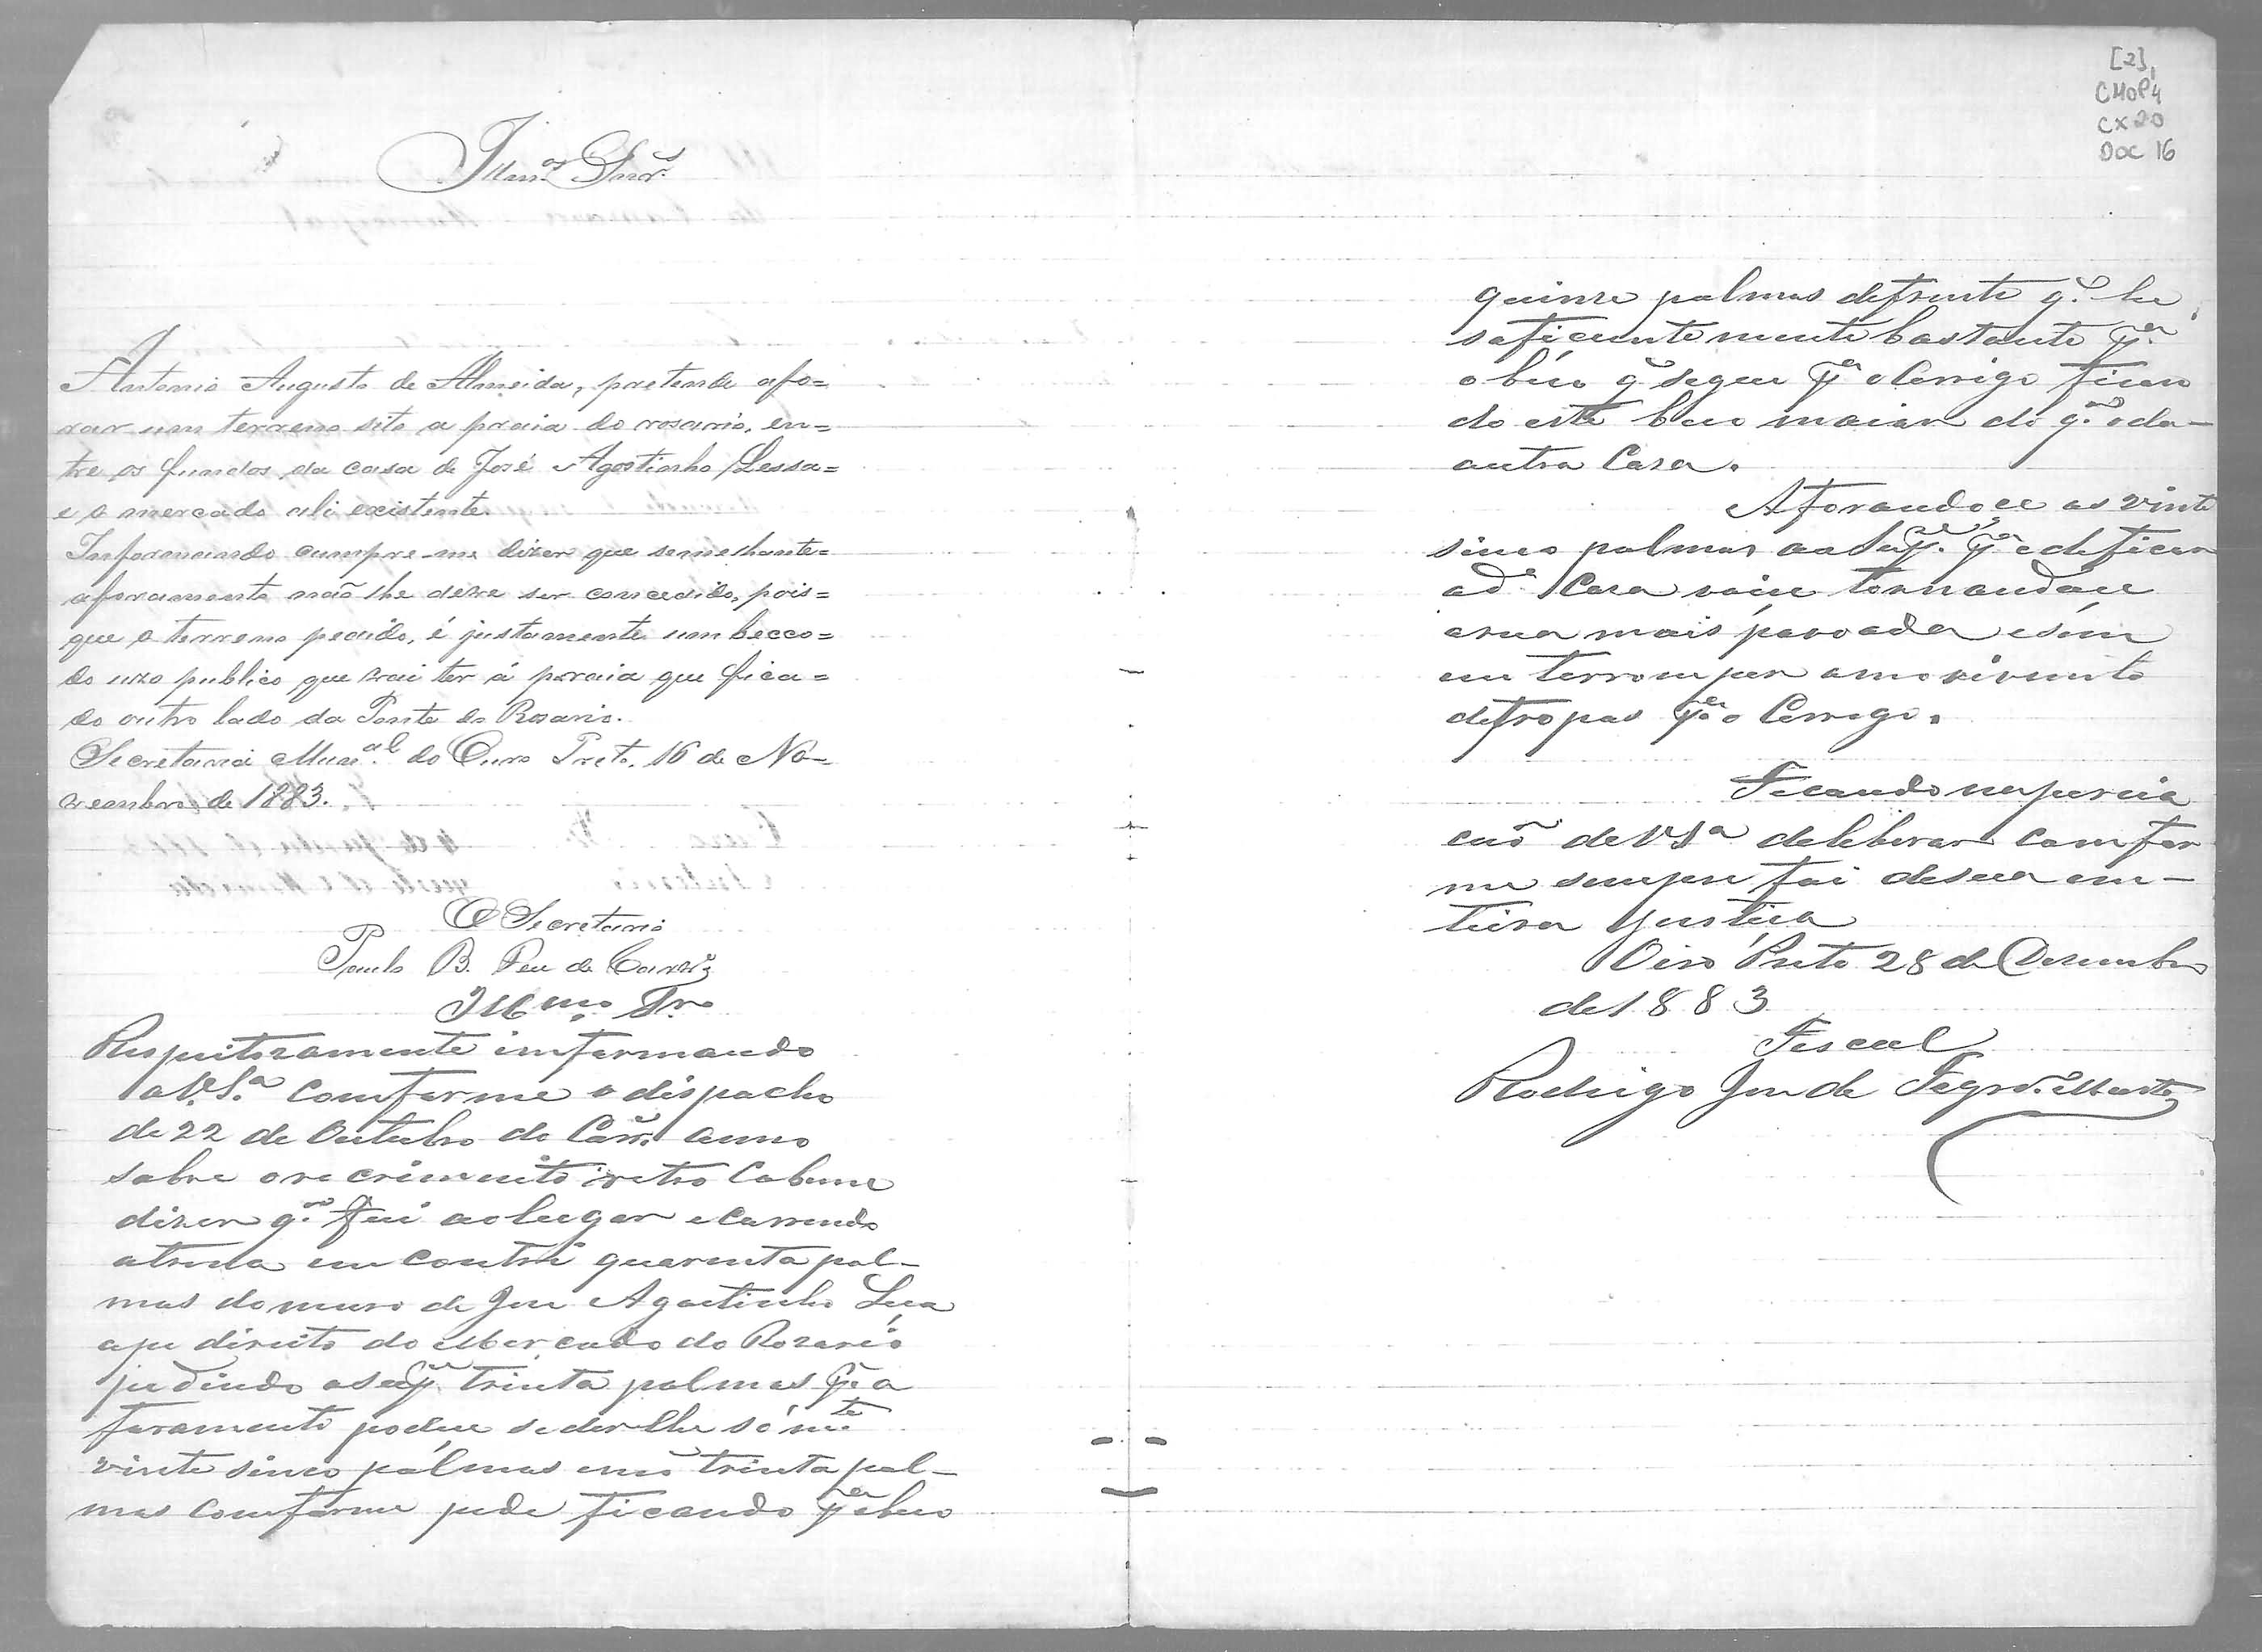 Illmos. Snrs.
Antonio Augusto de Almeida, pretende afo=
rar um terreno sito a praia do rosario, en=
tre os fundos da casa de José Agostinho Lessa=
e o mercado ali existente.
Informando cumpre-me dizer que semelhante=
aforamento não lhe deve ser concedido, pois=
que o terreno pedido, é justamente um becco=
do uzo publico que vai ter á praia que fica=
do outro lado da Ponte do Rosario.
Secretaria Munal. do Ouro Preto, 16 de No-
vembro de 1883.
O Secretario
Paulo B. de
Illmo. Snr.
Respeitozamente imformando
a V.S.a comforme o dispacho
de 22 de Outubro do Corr. anno
sobre o re crimento retro Cabeme
dizer q. fui ao lugar e Correndo
atrena em contrei quarenta pal-
mos do muro de Jose Agostinho Leça
ape direito do Mercado do Rozario
pedindo o supe. trinta palmos pa. a
foramento podece seder lhe só mte
vinte sinco palmos enão trinta pal-
mos comforme pede ficando pa. obeco
[2]
CMOP4
CX20
DOC 16
quinze palmos defrente q. he
soficiente mente bastante pa.
o béco q segue pa o Corrigo fican
do este beco maior do q. o da-
outra Caza.
Aforandoce os vinte
sinco palmos ao Supe. pa. edeficar
ad.e Caza vaice tornandoce
arua mais povoada esem
em terromper o movimento
detropas pa. o Corrigo.
Ficando na
de V Sa deleberar comfor
me sempre foi desua em-
teira justiça
Oiro Preto 28 de Dezembro
de 1883
Fiscal
Rodrigo Jose de Figrdo. Murta